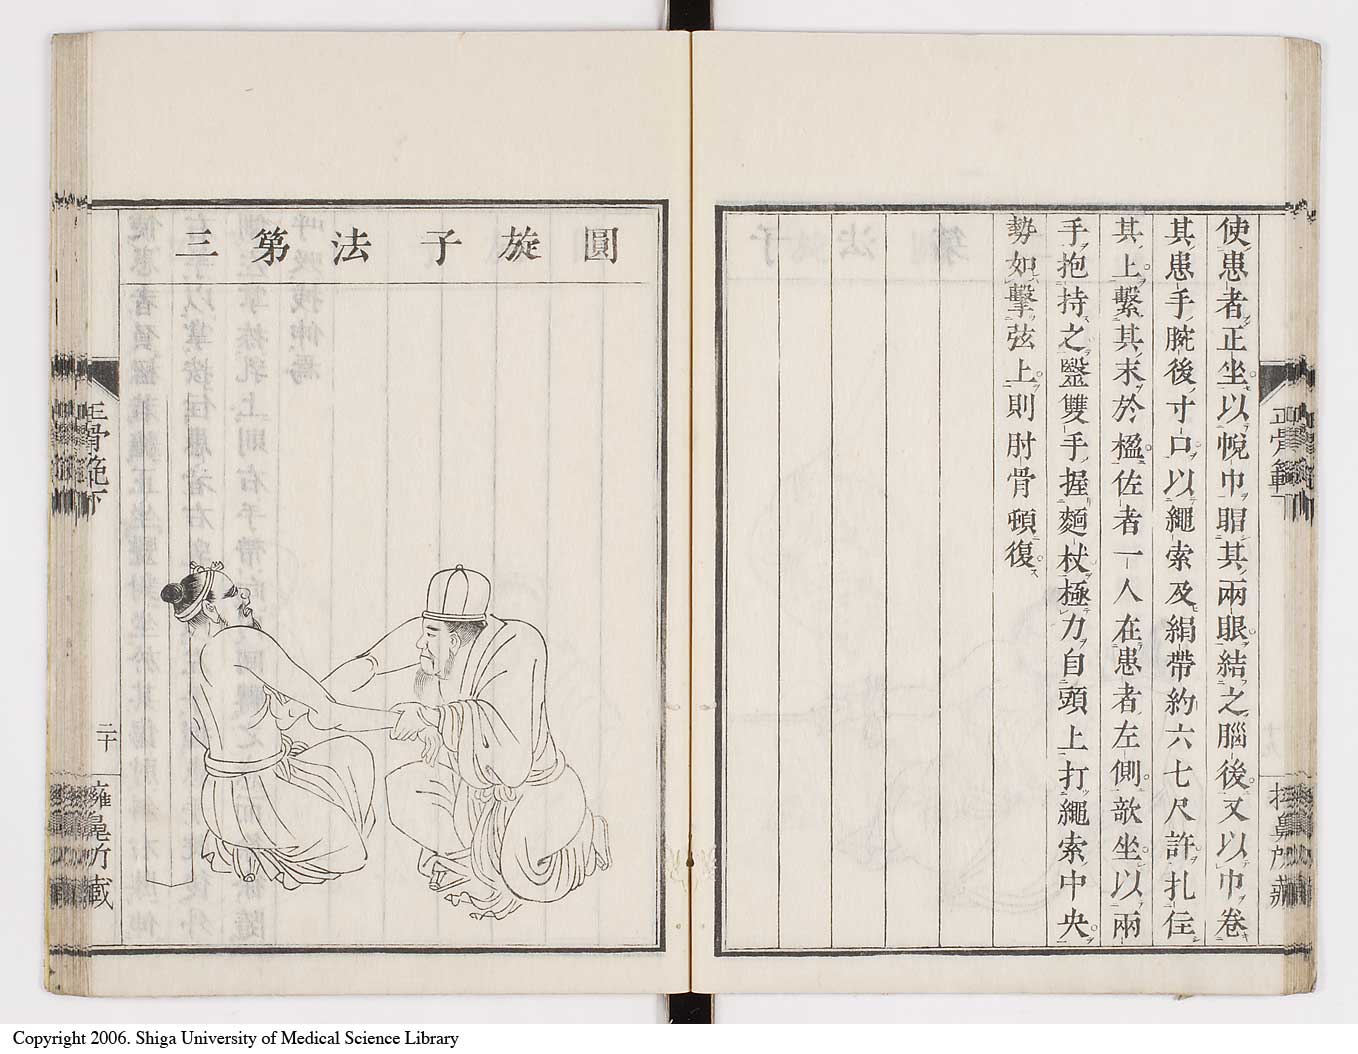 使患者正坐以帨巾眲其兩眼結之腦後又以巾卷
其患手腕後寸口以繩索及絹帶約六七尺許扎住
其上繫其末於楹佐者一人在患者左側歆坐以兩
手抱持之毉雙手握麵杖極力自頭上打繩索中央
勢如擊弦上則肘骨頓復
圓旋子法第三
正骨範下
二十
Copyright 2006. Shiga University of Medical Science Library